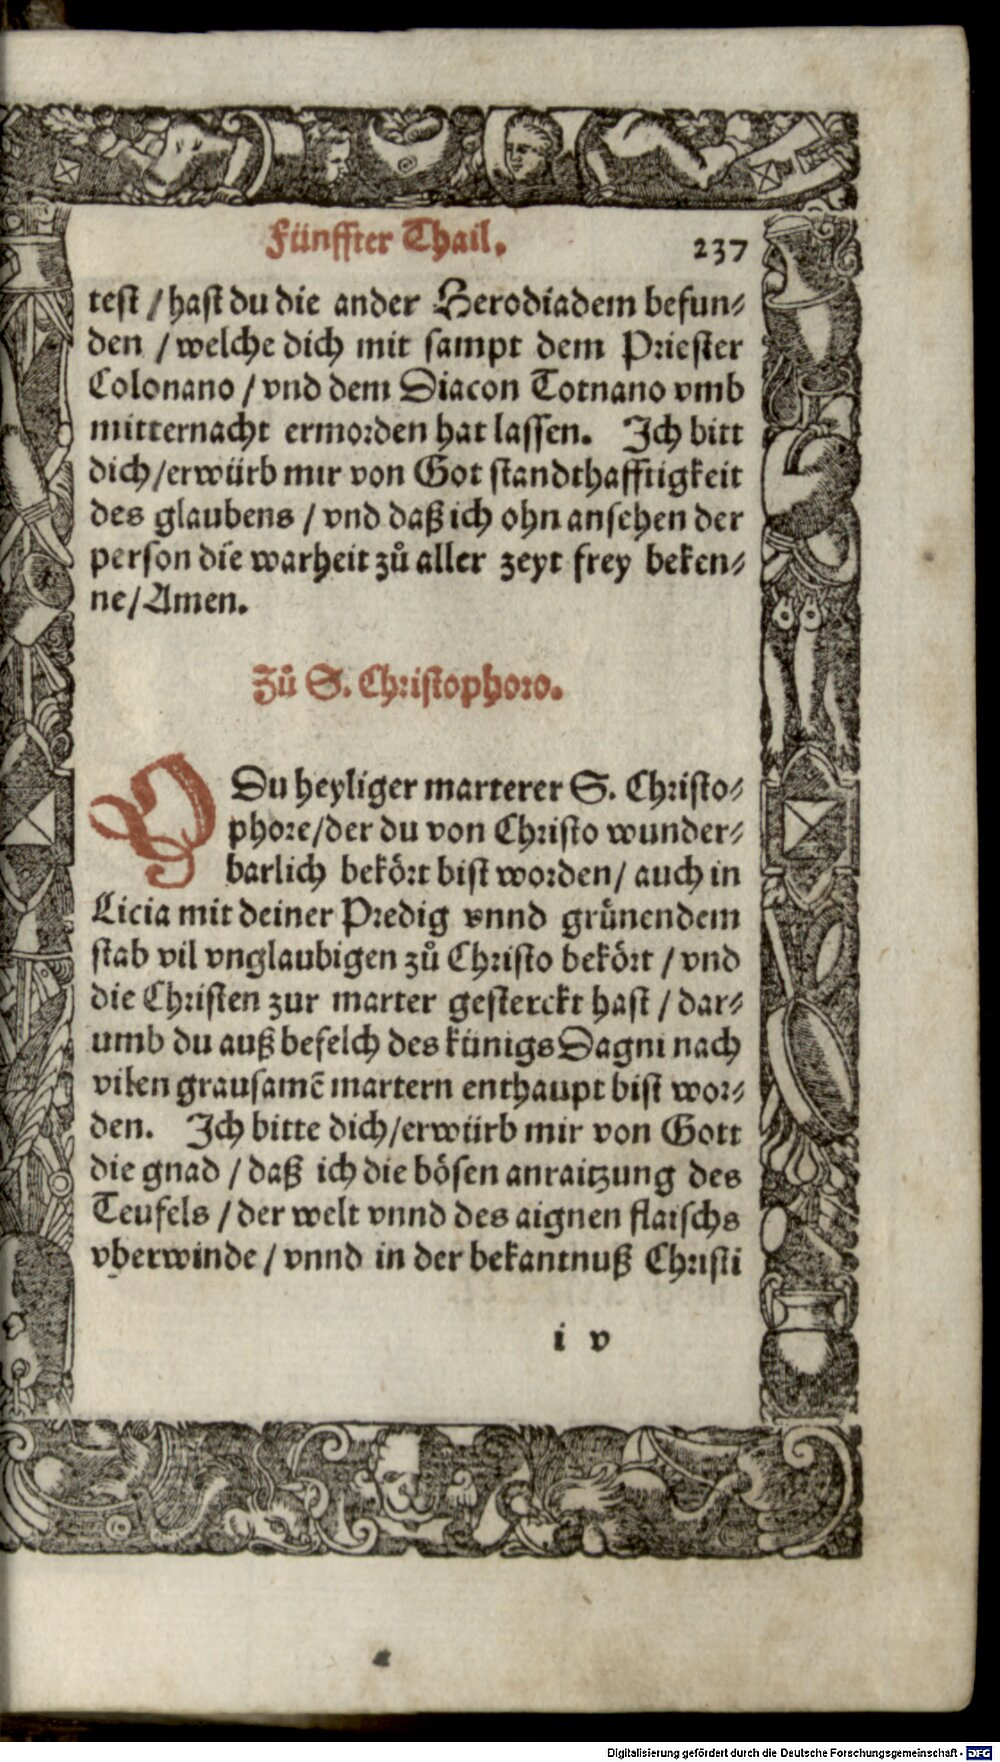 Fünffter Thail. 237
test / hast du die ander Herodiadem befun-
den / welche dich mit sampt dem Priester
Colonano / vnd dem Diacon Totnano vmb
mitternacht ermorden hat lassen. Ich bitt
dich / erwürb mir von Got standthafftigkeit
des glaubens / vnd daß ich ohn ansehen der
person die warheit zů aller zeyt frey beken-
ne / Amen.
Zů S. Christophoro.
O Du heyliger marterer S. Christo-
phore / der du von Christo wunder-
barlich bekört bist worden / auch in
Licia mit deiner Predig vnnd grünendem
stab vil vnglaubigen zů Christo bekört / vnd
die Christen zur marter gesterckt hast / dar-
umb du auß befelch des künigs Dagni nach
vilen grausamē martern enthaupt bist wor-
den. Ich bitte dich / erwürb mir von Gott
die gnad / daß ich die bösen anraitzung des
Teufels / der welt vnnd des aignen flaischs
vberwinde / vnnd in der bekantnuß Christi
i v
Digitalisierung gefördert durch die Deutsche Forschungsgemeinschaft - DFG